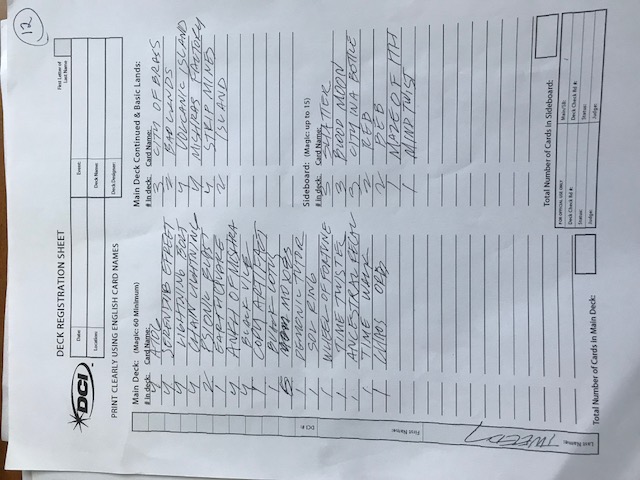 12
DECK REGISTRATION SHEET
First Letter of
Last Name
DCI
Date:
Event:
Location:
Deck Name:
Deck Designer:
PRINT CLEARLY USING ENGLISH CARD NAMES
Main Deck: (Magic: 60 Minimum)
# in deck: Card Name:
4 ATOG
4 SERENDIB EFREET
4 LIGHTNING BOLT
4 CHAIN LIGHTNING
2 PSIONIC BLAST
1 EARTHQUAKE
4 ANKH OF MISHRA
4 BLACK VICE
1 COPY ARTIFACT
1 BLACK LOTUS
5 MOXES
1 DEMONIC TUTOR
1 SOL RING
1 WHEEL OF FORTUNE
1 TIME TWISTER
1 ANCESTRAL RECAL
1 TIME WALK
1 CHAOS ORB
Total Number of Cards in Main Deck:
Main Deck Continued & Basic Lands:
# in deck: Card Name:
3 CITY OF BRASS
2 BADLANDS
4 VOLCANIC ISLAND
4 MISHRAS FACTORY
4 STRIP MINES
2 ISLAND
Sideboard: (Magic: up to 15)
# in deck: Card Name:
3 SHATTER
3 BLOOD MOON
3 CITY IN A BOTTLE
2 REB
2 BEB
1 MAZE OF ITH
1 MIND TWIST
Total Number of Cards in Sideboard:
FOR OFFICIAL USE ONLY
Main/SB:
Deck Check Rd #:
Deck Check Rd #:
Status:
Status:
Judge:
Judge:
DCI #:
First Name:
Last Name: TWEEDY